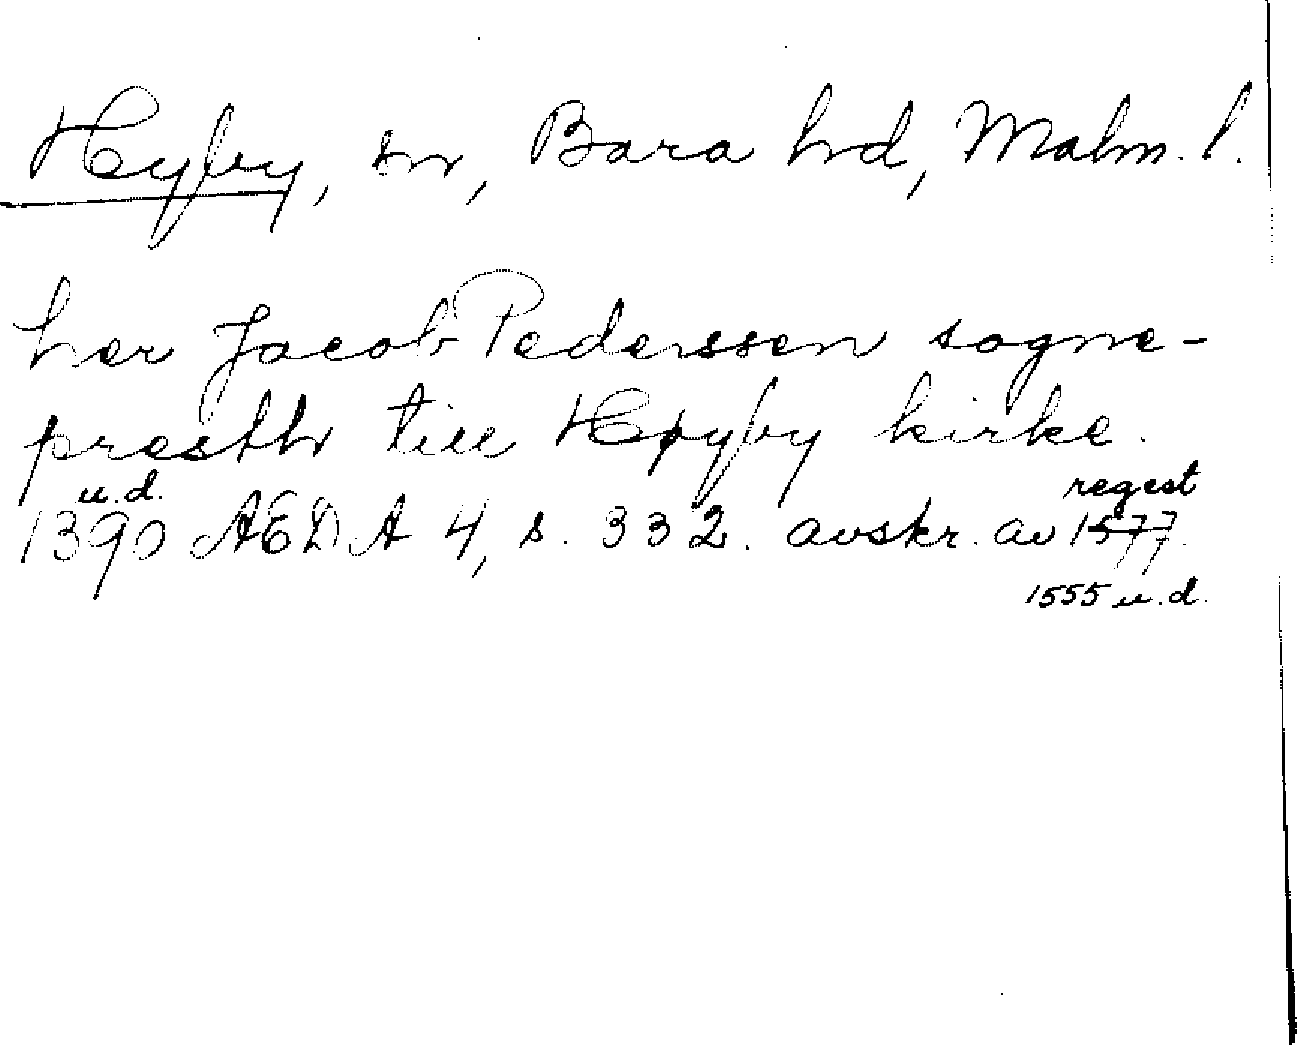 Hyby, sn, Bara hd, Malm. l.
her Jacob Pederssen sogne-
presth till Høyby kirke.
u.d. regest
1390 AEDA 4, s. 332. avskr. av 1577.
1555 u.d.